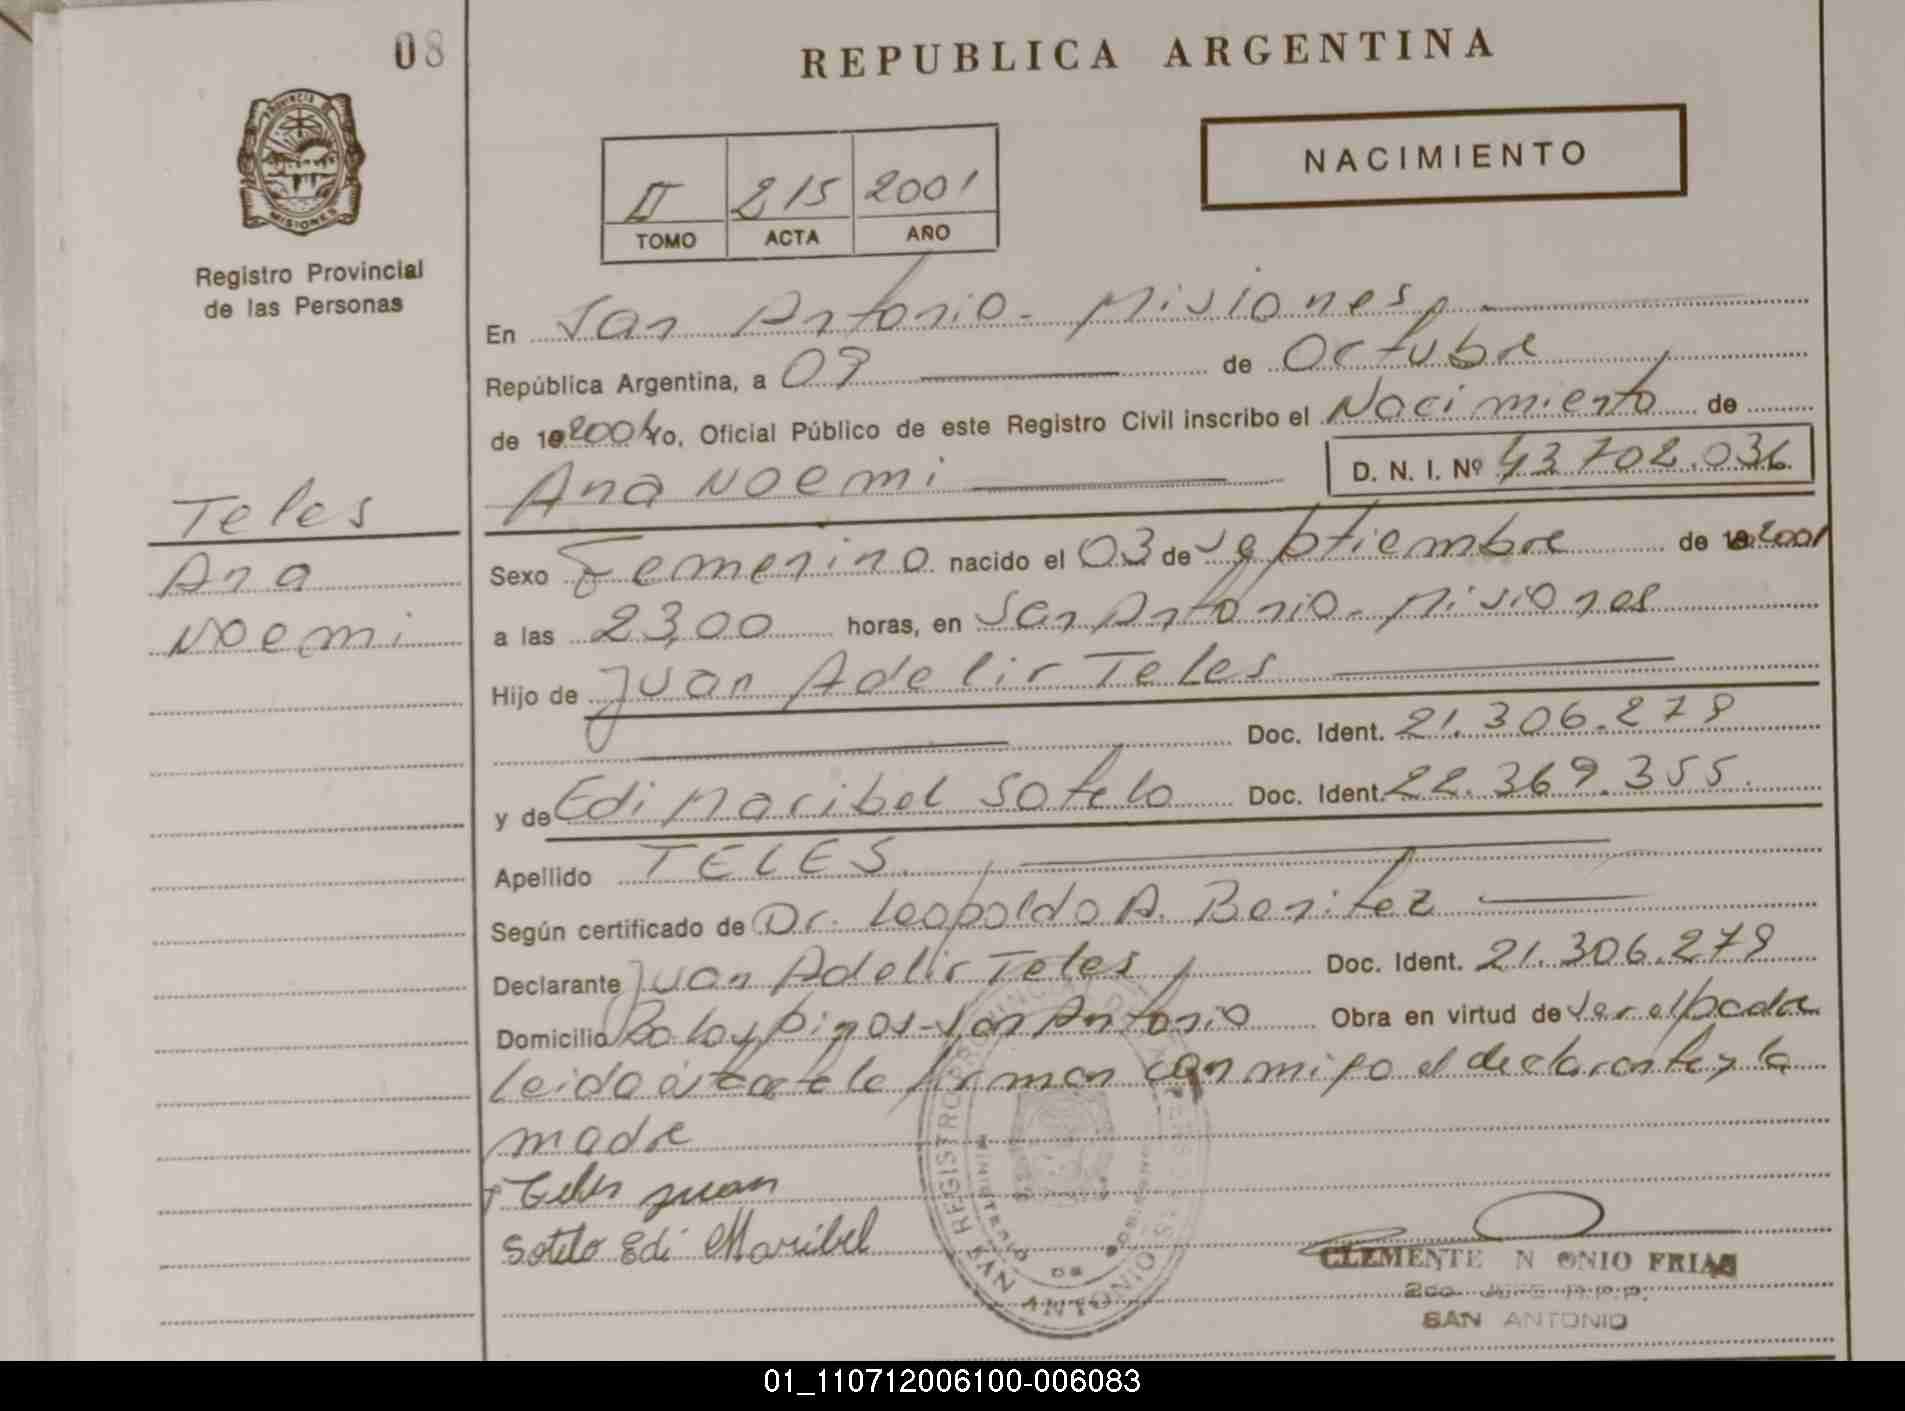 08
REPUBLICA ARGENTINA
PROVINCIA DE
MISIONES
NACIMIENTO
II 215 2001
TOMO ACTA AÑO
Registro Provincial
de las Personas
En San Antonio - Misiones
República Argentina, a 09 de Octubre
de 192001 Yo, Oficial Público de este Registro Civil inscribo el Nacimiento de
Ana Noemi D. N. I. Nº 43702.036
Teles
Ana
Noemi
Sexo Femenino nacido el 03 de Septiembre de 192001
a las 23,00 horas, en San Antonio - Misiones
Hijo de Juan Adelir Teles
Doc. Ident. 21.306.279
y de Edi Maribel Sotelo Doc. Ident. 22.369.355.
Apellido TELES.
Según certificado de Dr. Leopoldo A. Benitez
Declarante Juan Adelir Teles Doc. Ident. 21.306.279
Domicilio Pinos - San Antonio Obra en virtud de ser el padre
leida firman conmigo el declarante y la
madre
Teles Juan
Sotelo Edi Maribel
CLEMENTE N ONIO FRIAS
2do. JEFE R.P.P.
SAN ANTONIO
01_110712006100-006083